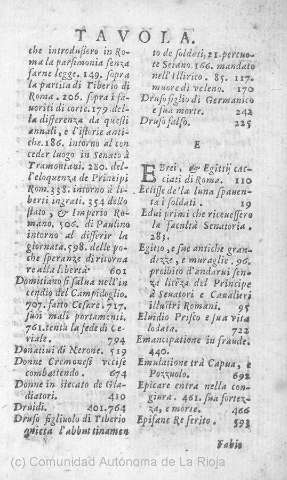 TAVOLA.
che introdussero in Ro-
ma la parsimonia senza
farne legge. 149. sopra
la partita di Tiberio di
Roma. 206. sopra i fa-
uoriti di corte. 179. del-
la differenza da questi
annali, e l'istorie anti-
che. 186. intorno al con
ceder luogo in Senato à
Tramontani. 280. del-
l'eloquenza de Prencipi
Rom. 338. intorno à li-
berti ingrati. 354. dello
stato, & Imperio Ro-
mano. 506. di Paulino
intorno al differir la
giornata. 598. delle po-
che speranze di ritorna
re alla libertà 601
Domitiano si salua nell'in
cendio del Campidoglio.
707. fatto Cesare; 717.
suoi mali portamenti.
761. tenta la fede di Ce-
riale. 794
Donatiui di Nerone. 519
Donne Cremonesi vccise
combattendo. 674
Donne in stecato de Gla-
diatori. 410
Druidi. 401.764
Druso figliuolo di Tiberio
quieta l'abbuttinamen
to de soldati, 21. percuo-
te Seiano. 166. mandato
nell'Illirico. 85. 117.
muore di veleno. 170
Druso figlio di Germanico
e sua morte. 242
Druso falso. 225
E
EBrei, & Egitij cac-
ciati di Roma. 110
Eclisse de la luna spauen-
ta i soldati. 19
Edui primi che riceuessero
la facultà Senatoria.
283.
Egitto, e sue antiche gran-
dezze, e muraglie. 96.
proibito d'andarui sen-
ze liceza del Principe
à Senatori e Caualieri
illustri Romani. 95
Eluidio Prisco e sua vita
lodata. 722
Emancipatione in fraude.
440.
Emulatione trà Capua, e
Pozzuolo. 692
Epicare entra nella con-
giura. 461. sua fortez-
za, e morte. 466
Epifane Re ferito. 593
Fabio
(c) Comunidad Autónoma de La Rioja